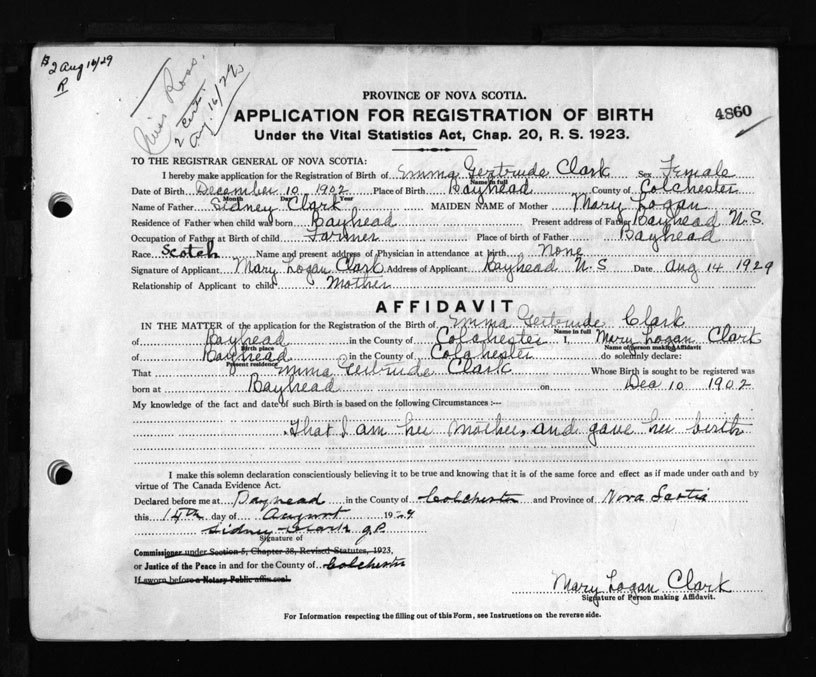 $2 Aug 16/29
R
Miss Ross.
2 certs.
Aug. 16/29
PROVINCE OF NOVA SCOTIA.
APPLICATION FOR REGISTRATION OF BIRTH
4860
Under the Vital Statistics Act, Chap. 20, R. S. 1923.
TO THE REGISTRAR GENERAL OF NOVA SCOTIA:
I hereby make application for the Registration of Birth of Emma Gertrude Clark Sex Female
Name in full
Date of Birth December 10 1902 Place of Birth Bayhead County of Colchester
Month Day Year
Name of Father Sidney Clark MAIDEN NAME of Mother Mary Logan
Residence of Father when child was born Bayhead Present address of Father Bayhead N.S.
Occupation of Father at Birth of child Farmer Place of birth of Father Bayhead
Race Scotch Name and present address of Physician in attendance at birth None
Signature of Applicant Mary Logan Clark Address of Applicant Bayhead N.S Date Aug 14 1929
Relationship of Applicant to child Mother
AFFIDAVIT
IN THE MATTER of the application for the Registration of the Birth of Emma Gertrude Clark
Name in full
of Bayhead in the County of Colchester I, Mary Logan Clark
Birth place Name of person making Affidavit
of Bayhead in the County of Colchester do solemnly declare:
Present residence
That Emma Gertrude Clark Whose Birth is sought to be registered was
born at Bayhead on Dec 10 1902
My knowledge of the fact and date of such Birth is based on the following Circumstances :—
That I am her Mother, and gave her birth
I make this solemn declaration conscientiously believing it to be true and knowing that it is of the same force and effect as if made under oath and by
virtue of The Canada Evidence Act.
Declared before me at Bayhead in the County of Colchester and Province of Nova Scotia
this 14th day of August 1929
Sidney Clark J.P.
Signature of
Commissioner under Section 5, Chapter 38, Revised Statutes, 1923,
or Justice of the Peace in and for the County of Colchester
If sworn before a Notary Public affix seal.
Mary Logan Clark
Signature of Person making Affidavit.
For Information respecting the filling out of this Form, see Instructions on the reverse side.